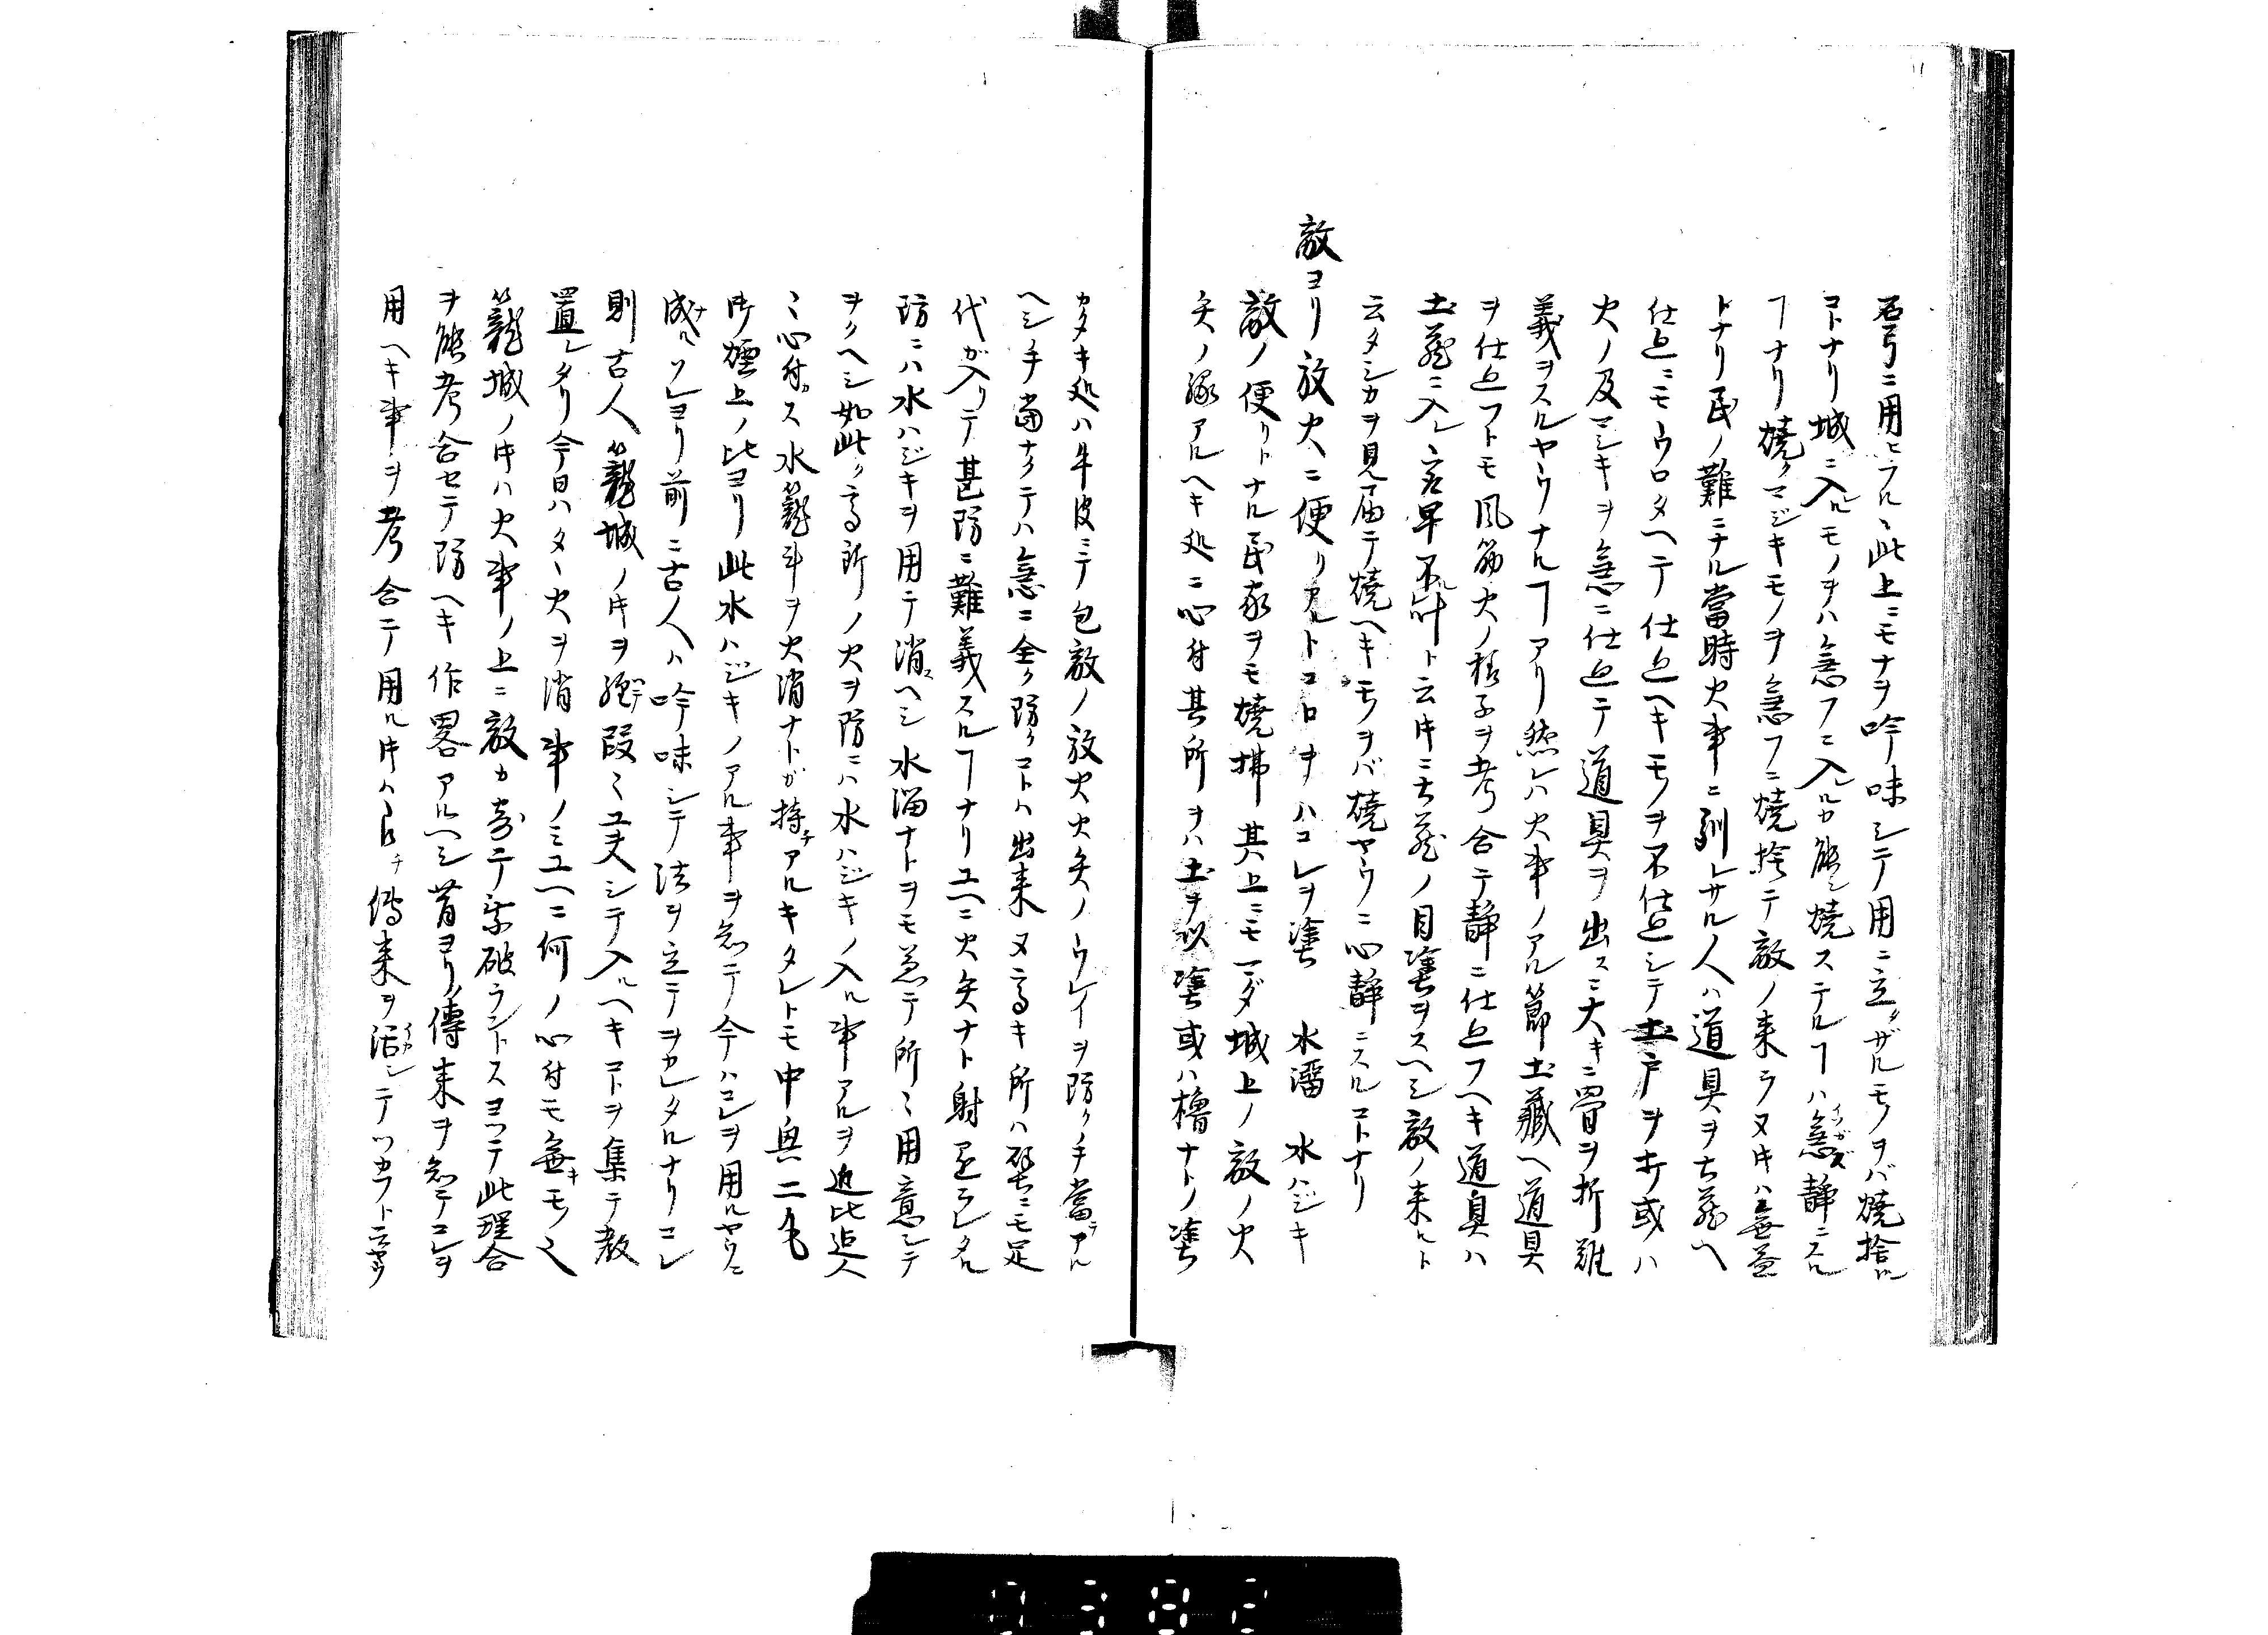 弓ニ用ヒラル、此上ニモナヲ吟味シテ用ニ立ザルモノヲバ焼捨ル
コトナリ城ニ入ルモノヲハ急フニ入ルカ能シ焼ステルヿハ急ガズ静ニスル
ヿナリ焼クマジキモノヲ急フニ焼捨テ敵ノ来ラヌ时ハ無益
トナリ民ノ難ニナル當時火事ニ馴レサル人ハ道具ヲ土蔵ヘ
仕廻ニモウロタヘテ仕廻ヘキモノヲ不仕廻シテ土戸ヲ打或ハ
火ノ及マシキヲ急ニ仕廻テ道具ヲ出スニ大キニ骨ヲ折難
義ヲスルヤウナルヿアリ然レハ火事ノアル節土藏ヘ道具
ヲ仕廻フトモ風筋火ノ様子ヲ考合テ静ニ仕廻フヘキ道具ハ
土蔵ニ入レ最早不叶ト云时ニ土蔵ノ目塗ヲスヘシ敵ノ来ルト
云タシカヲ見届テ焼ヘキモノヲバ焼ヤウニ心静ニスルコトナリ
敵ヨリ放火ニ便リアルトコロヲハコレヲ塗 水溜 水ハジキ
敵ノ便リトナル民家ヲモ焼拂其上ニモマダ城上ノ敵ノ火
矢ノ縁アルヘキ処ニ心付其所ヲハ土ヲ以塗或ハ櫓ナトノ塗
カタキ処ハ牛皮ニテ包敵ノ放火火矢ノウレイヲ防ク手當アル
ヘシ手當ナクテハ急ニ全ク防クコトハ出来ヌ高キ所ハ殊ニモ足
代ガ入リテ甚防ニ難義スルヿナリユヘニ火矢ナト射
防ニハ水ハジキヲ用テ消スヘシ水溜ナトヲモ兼テ所々ニ用意シテ
ヲクヘシ如此ク高所ノ火ヲ防ニハ水ハジキノ入ル事アルヲ近比迄人
々心付ス水籠斗ヲ火消ナトガ持チアルキタレトモ中奥二丸
炎上ノ比ヨリ此水ハジキノアル事ヲ知テ今ハコレヲ用ルヤウニ
成ルソレヨリ前ニ古人ハ吟味シテ法ヲ立テヲカレタルナリコレ
則古人籠城ノ时ヲ段々工夫シテ入ルヘキコトヲ集テ教
置レタリ今日ハタヽ火ヲ消事ノミユヘニ何ノ心付モ無キモノ也
籠城ノ时ハ火事ノ上ニ敵カ寄テ乗破ラントスヨツテ此理合
ヲ能考合セテ防ヘキ作畧アルヘシ昔ヨリノ傳来ヲ知テコレヲ
用ヘキ事ヲ考合テ用ル时ハ良チ傳来ヲ活シテツカフト云モノ